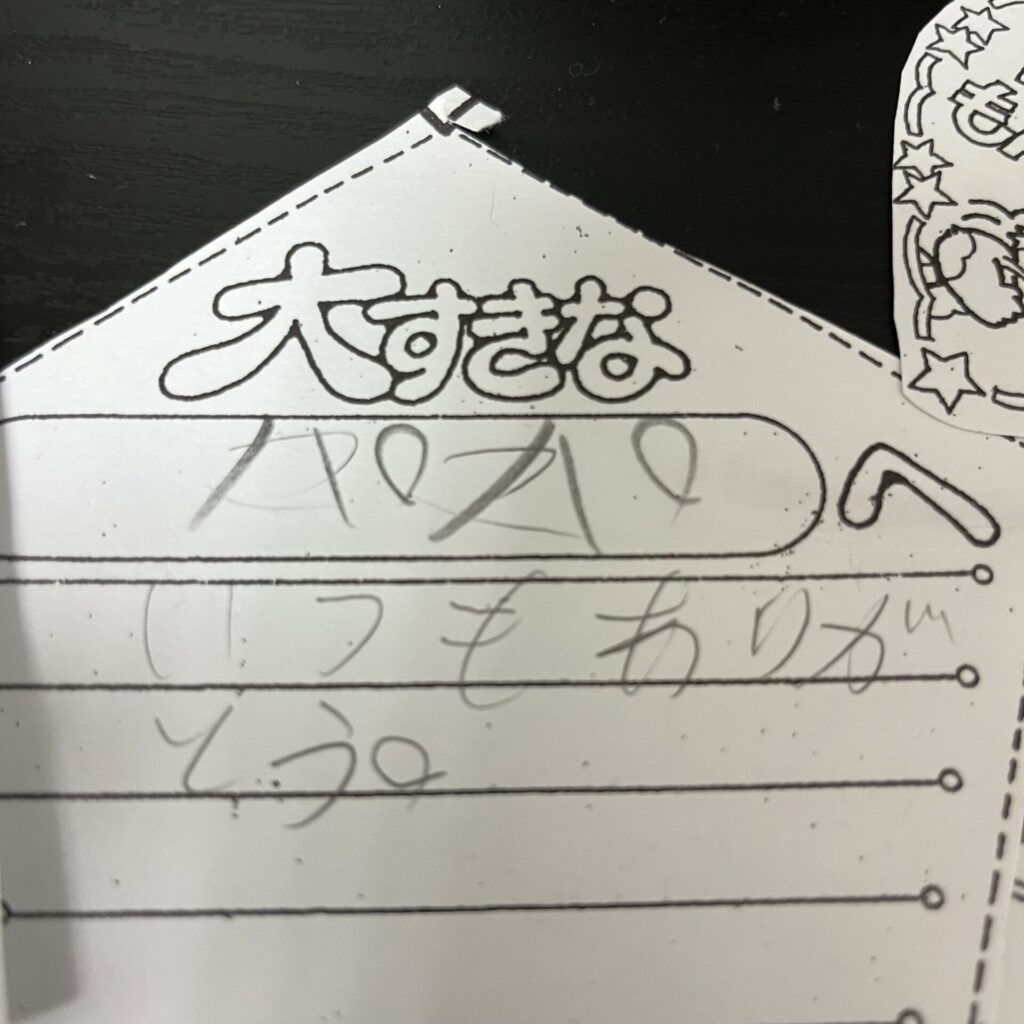 大すきな
パパへ
いつもありが
とう。
も